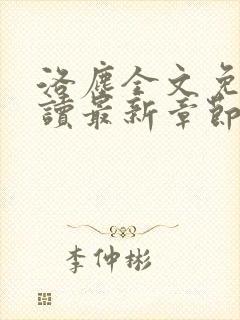 洛塵全文免
讀最新章節
李仲彬